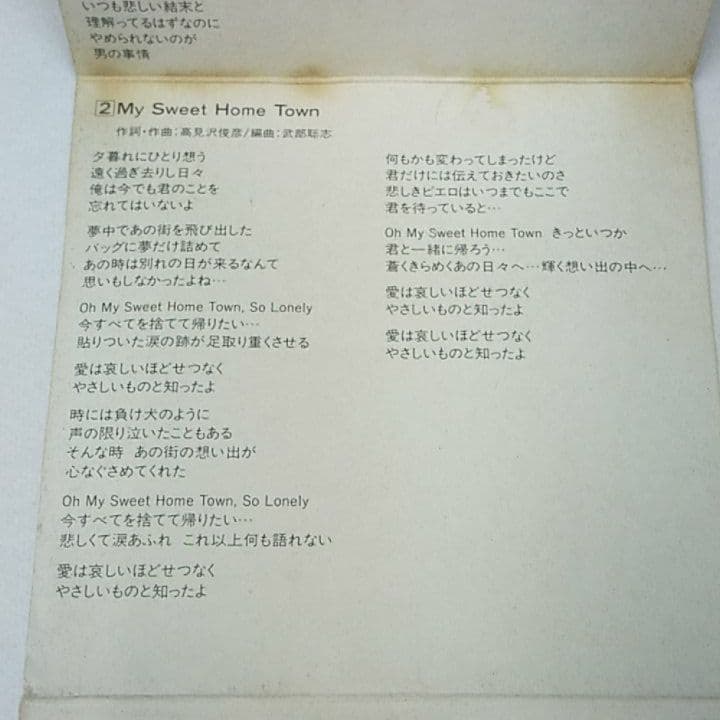 いつも悲しい結末と
理解ってるはずなのに
やめられないのが
男の事情
2 My Sweet Home Town
作詞・作曲:高見沢俊彦/編曲:武部聡志
夕暮れにひとり想う
遠く過ぎ去りし日々
俺は今でも君のことを
忘れてはいないよ
夢中であの街を飛び出した
バッグに夢だけ詰めて
あの時は別れの日が来るなんて
思いもしなかったよね…
Oh My Sweet Home Town, So Lonely
今すべてを捨てて帰りたい…
貼りついた涙の跡が足取り重くさせる
愛は哀しいほどせつなく
やさしいものと知ったよ
時には負け犬のように
声の限り泣いたこともある
そんな時 あの街の想い出が
心なぐさめてくれた
Oh My Sweet Home Town, So Lonely
今すべてを捨てて帰りたい…
悲しくて涙あふれ これ以上何も語れない
愛は哀しいほどせつなく
やさしいものと知ったよ
何もかも変わってしまったけど
君だけには伝えておきたいのさ
悲しきピエロはいつまでもここで
君を待っていると…
Oh My Sweet Home Town きっといつか
君と一緒に帰ろう…
蒼くきらめくあの日々へ…輝く想い出の中へ…
愛は哀しいほどせつなく
やさしいものと知ったよ
愛は哀しいほどせつなく
やさしいものと知ったよ